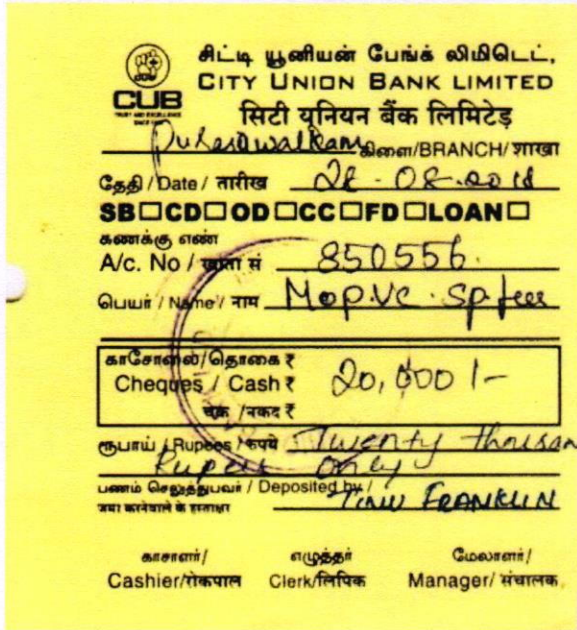 சிட்டி யூனியன் பேங்க் லிமிடெட்,
CITY UNION BANK LIMITED
CUB
TRUST AND EXCELLENCE
सिटी यूनियन बैंक लिमिटेड
Purasawalkam கிளை/BRANCH/ शाखा
தேதி / Date / तारीख 28-08-2018
SB□CD□OD□CC□FD□LOAN□
கணக்கு எண்
A/c. No / खाता सं 850556
பெயர் / Name / नाम M.O.P.V.C. Sp. fees
காசோலை/தொகை ₹
Cheques / Cash ₹ 20,000/-
चेक /नकद ₹
ரூபாய் / Rupees / रूपये Twenty thousan
Rupees Only
பணம் செலுத்துபவர் / Deposited by /
जमा करनेवाले के हस्ताक्षर TINU FRANKLIN
காசாளர்/ எழுத்தர் மேலாளர்/
Cashier/रोकपाल Clerk/लिपिक Manager/ संचालक